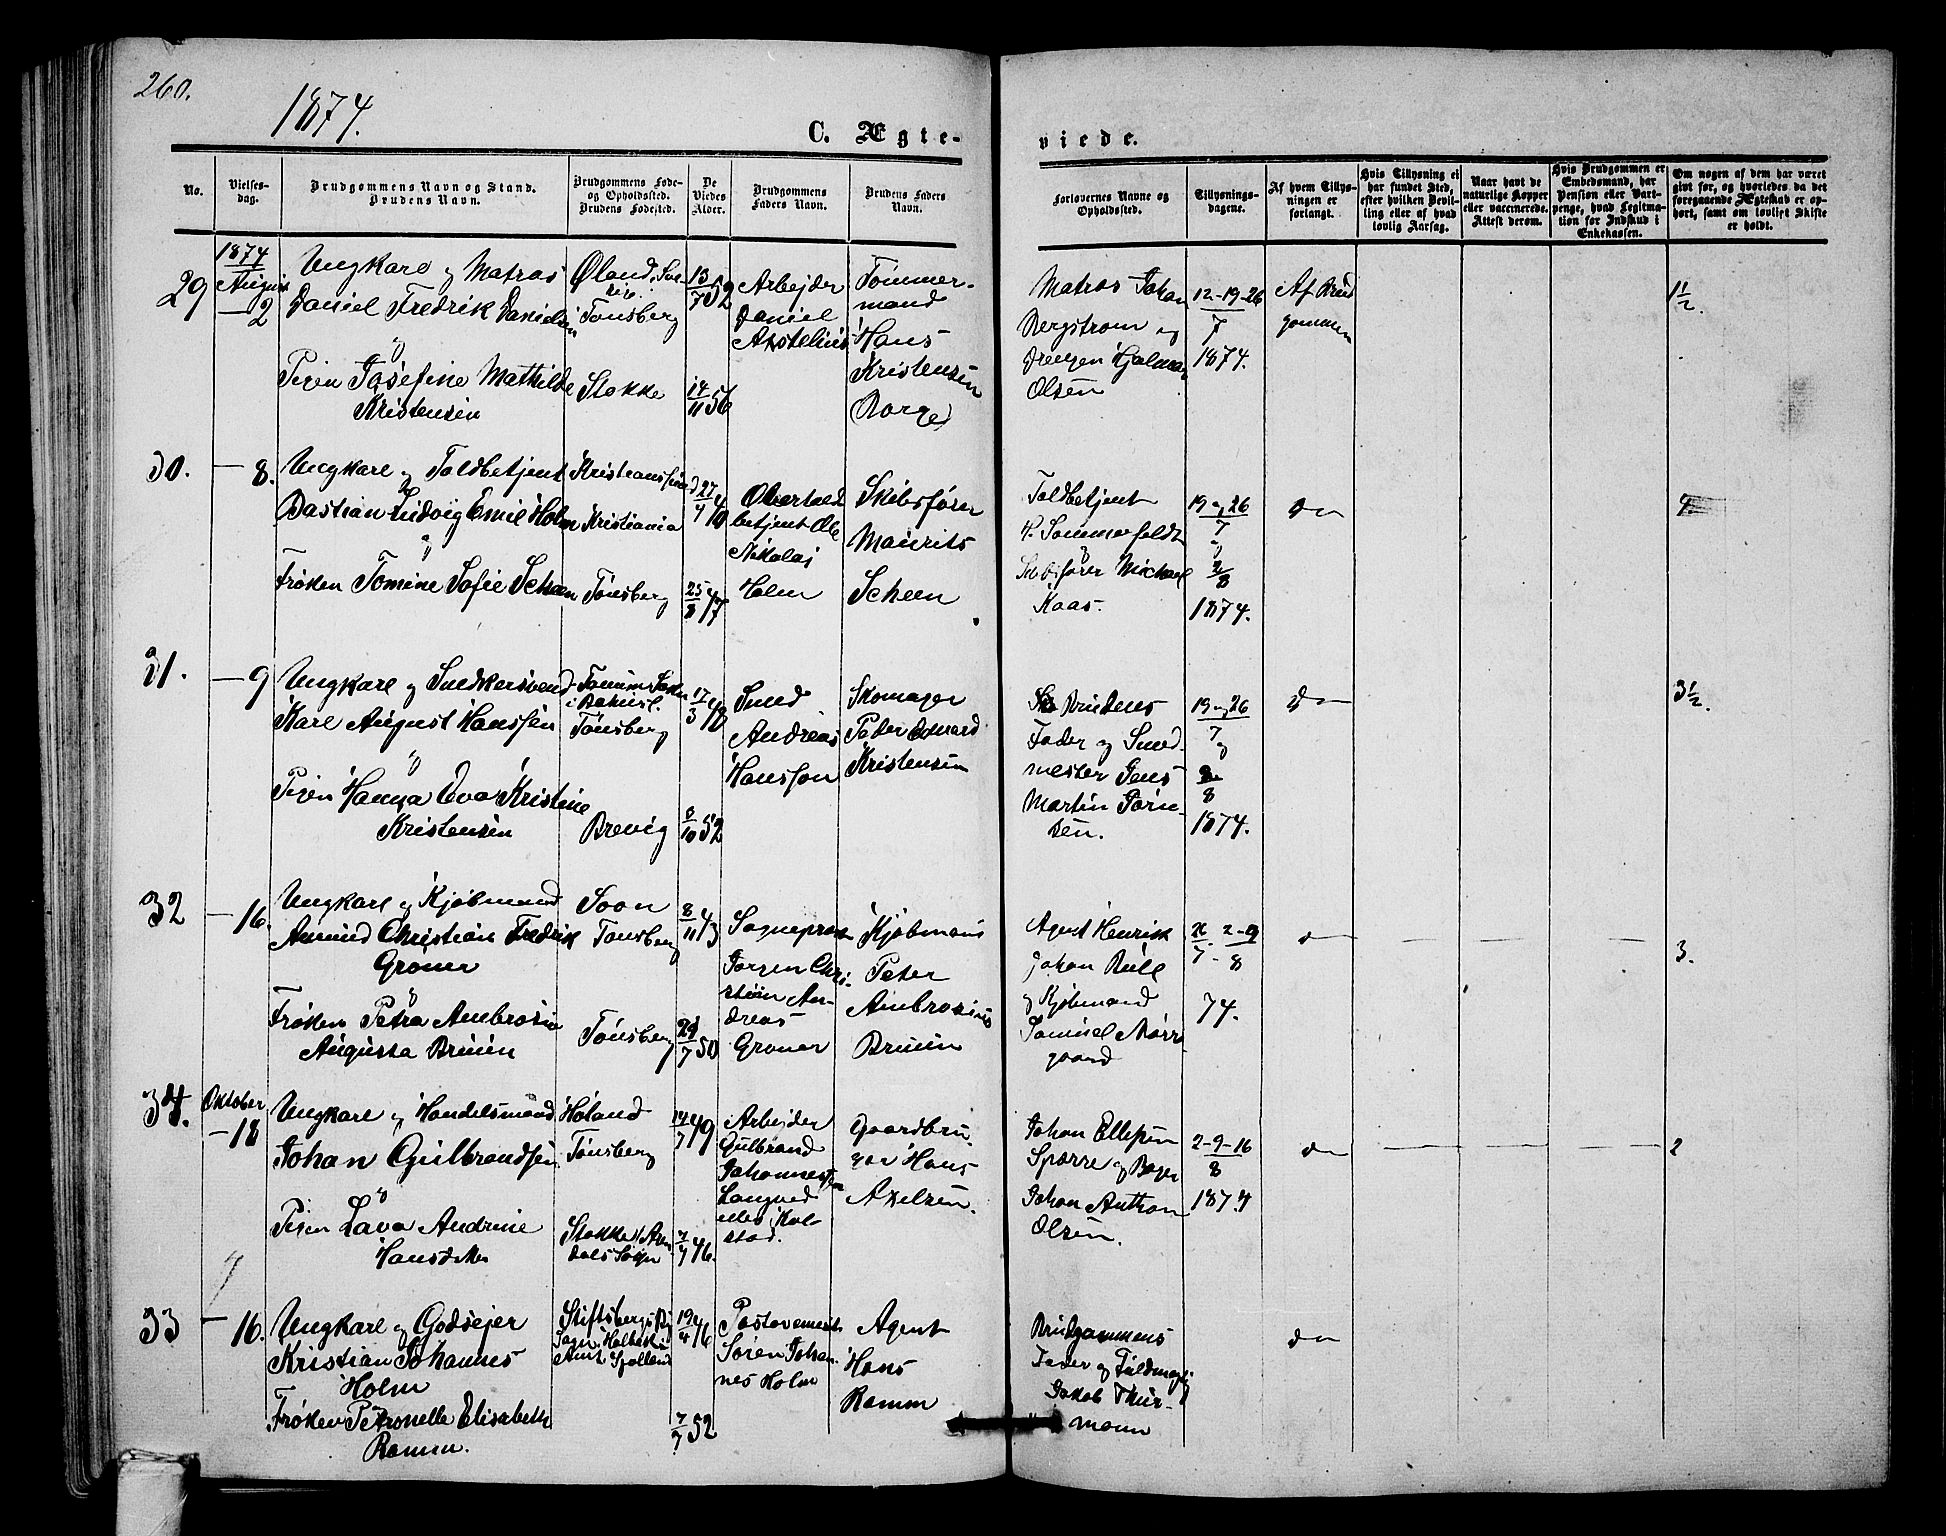 260.
1874.
C. Ægte-
viede.
No.
Vielses-
dag.
Brudgommens Navn og Stand.
Brudens Navn.
Brudgommens Føde-
og Opholdssted.
Brudens Fødested.
De
Viedes
Alder.
Brudgommens
Faders Navn.
Brudens Faders
Navn.
Forlovernes Navne og
Opholdssted.
Tillysnings-
dagene.
Af hvem Tillys-
ningen er
forlangt.
Hvis Tillysning ei
har fundet Sted,
efter hvilken Bevil-
ling eller af hvad
lovlig Aarsag.
Naar havt de
naturlige Kopper
eller vaccinerede.
Attest derom.
Hvis Brudgommen er
Embedsmand, har
Pension eller Vart-
penge, hvad Legitima-
tion for Indskud i
Enkekassen.
Om nogen af dem har været
gift før, og hvorledes da det
foregaaende Ægteskab er op-
hørt, samt om lovligt Skifte
er holdt.
29
1874
August
2
Ungkarl og Matros
Daniel Fredrik Danielsen
og
Pigen Josefine Mathilde
Kristensen
Øland, Sve-
rig.
Tønsberg
Stokke
13/7 52
14/11 56
Arbejder
Daniel
Axtelius
Tømmer-
mand
Hans
Kristensen
Borge
Matros Johan
Bergstrøm og
Drengen Hjalmar
Olsen
12-19-26
7
1874.
Af Brud
gommen
1 1/2
30.
— 8.
Ungkarl og Toldbetjent
Bastian Ludvig Emil Holm
og
Frøken Tomine Sofie Scheen
Kristianssund
Kristiania
Tønsberg
25/8 47
Overtold
betjent Ole
Nikolai
Holm
Skibsfører
Maurits
Scheen
Toldbetjent
K. Sommerfeldt
og
Skibsfører Michael
Kaas.
19 og 26
7
og
2/8
1874.
do
4.
31.
— 9
Ungkarl og Snedkersvend
Karl August Hanssen
og
Pigen Hanna Eva Kristine
Kristensen
Tanum Sokn
i Bahusl.
Tønsberg
Brevig
17/3 48
8/10 52
Smed
Andreas
Hansson
Skomager
Peder Edvard
Kristensen
Brudens
Fader og Smed-
mester Jens
Martin Jørn-
sen.
19 og 26
7
og
2
8
1874.
do
3 1/2.
32
— 16.
Ungkarl og Kjøbmand
Amund Christian Fredrik
Grøner
og
Frøken Petra Ambrosia
Augusta Bruun
Soon
Tønsberg
Tønsberg
8/11 43
29/7 50
Sogneprest
Jørgen Chri-
stian An-
dreas
Grøner
Kjøbmand
Peter
Ambrosius
Bruun
Agent Henrik
Johan Bull
og Kjøbmand
Samuel Nørre-
gaard
26 2-9
7 - 8
74.
do
3.
34.
Oktober
— 18
Ungkarl og Handelsmand
Johan Gulbrandsen
og
Pigen Lava Andrine
Hansdatter
Høland
Tønsberg
Stokke, Aren
dals Sogn
14/7 49
7/7 46.
Arbejder
Gulbrand
Johannessen
Langned
eller Kol-
stad.
Gaardbru-
ger Hans
Axelsen.
Johan Ellefsen
Sporre og Bager
Johan Anthon
Olsen.
2-9-16
8
1874
do
2
33
— 16.
Ungkarl og Godsejer
Kristian Johannes
Holm
Frøken Petronelle Elisabeth
Ramm.
Stiftsbergsby
Sogn, Holbæk
Amt Sjælland
19/4 46
7/7 52
Søren Johan-
nes Holm
Agent
Hans
Ramm
Brudgommens
Fader og Fuldmægtig
Jakob Thur-
mann
do